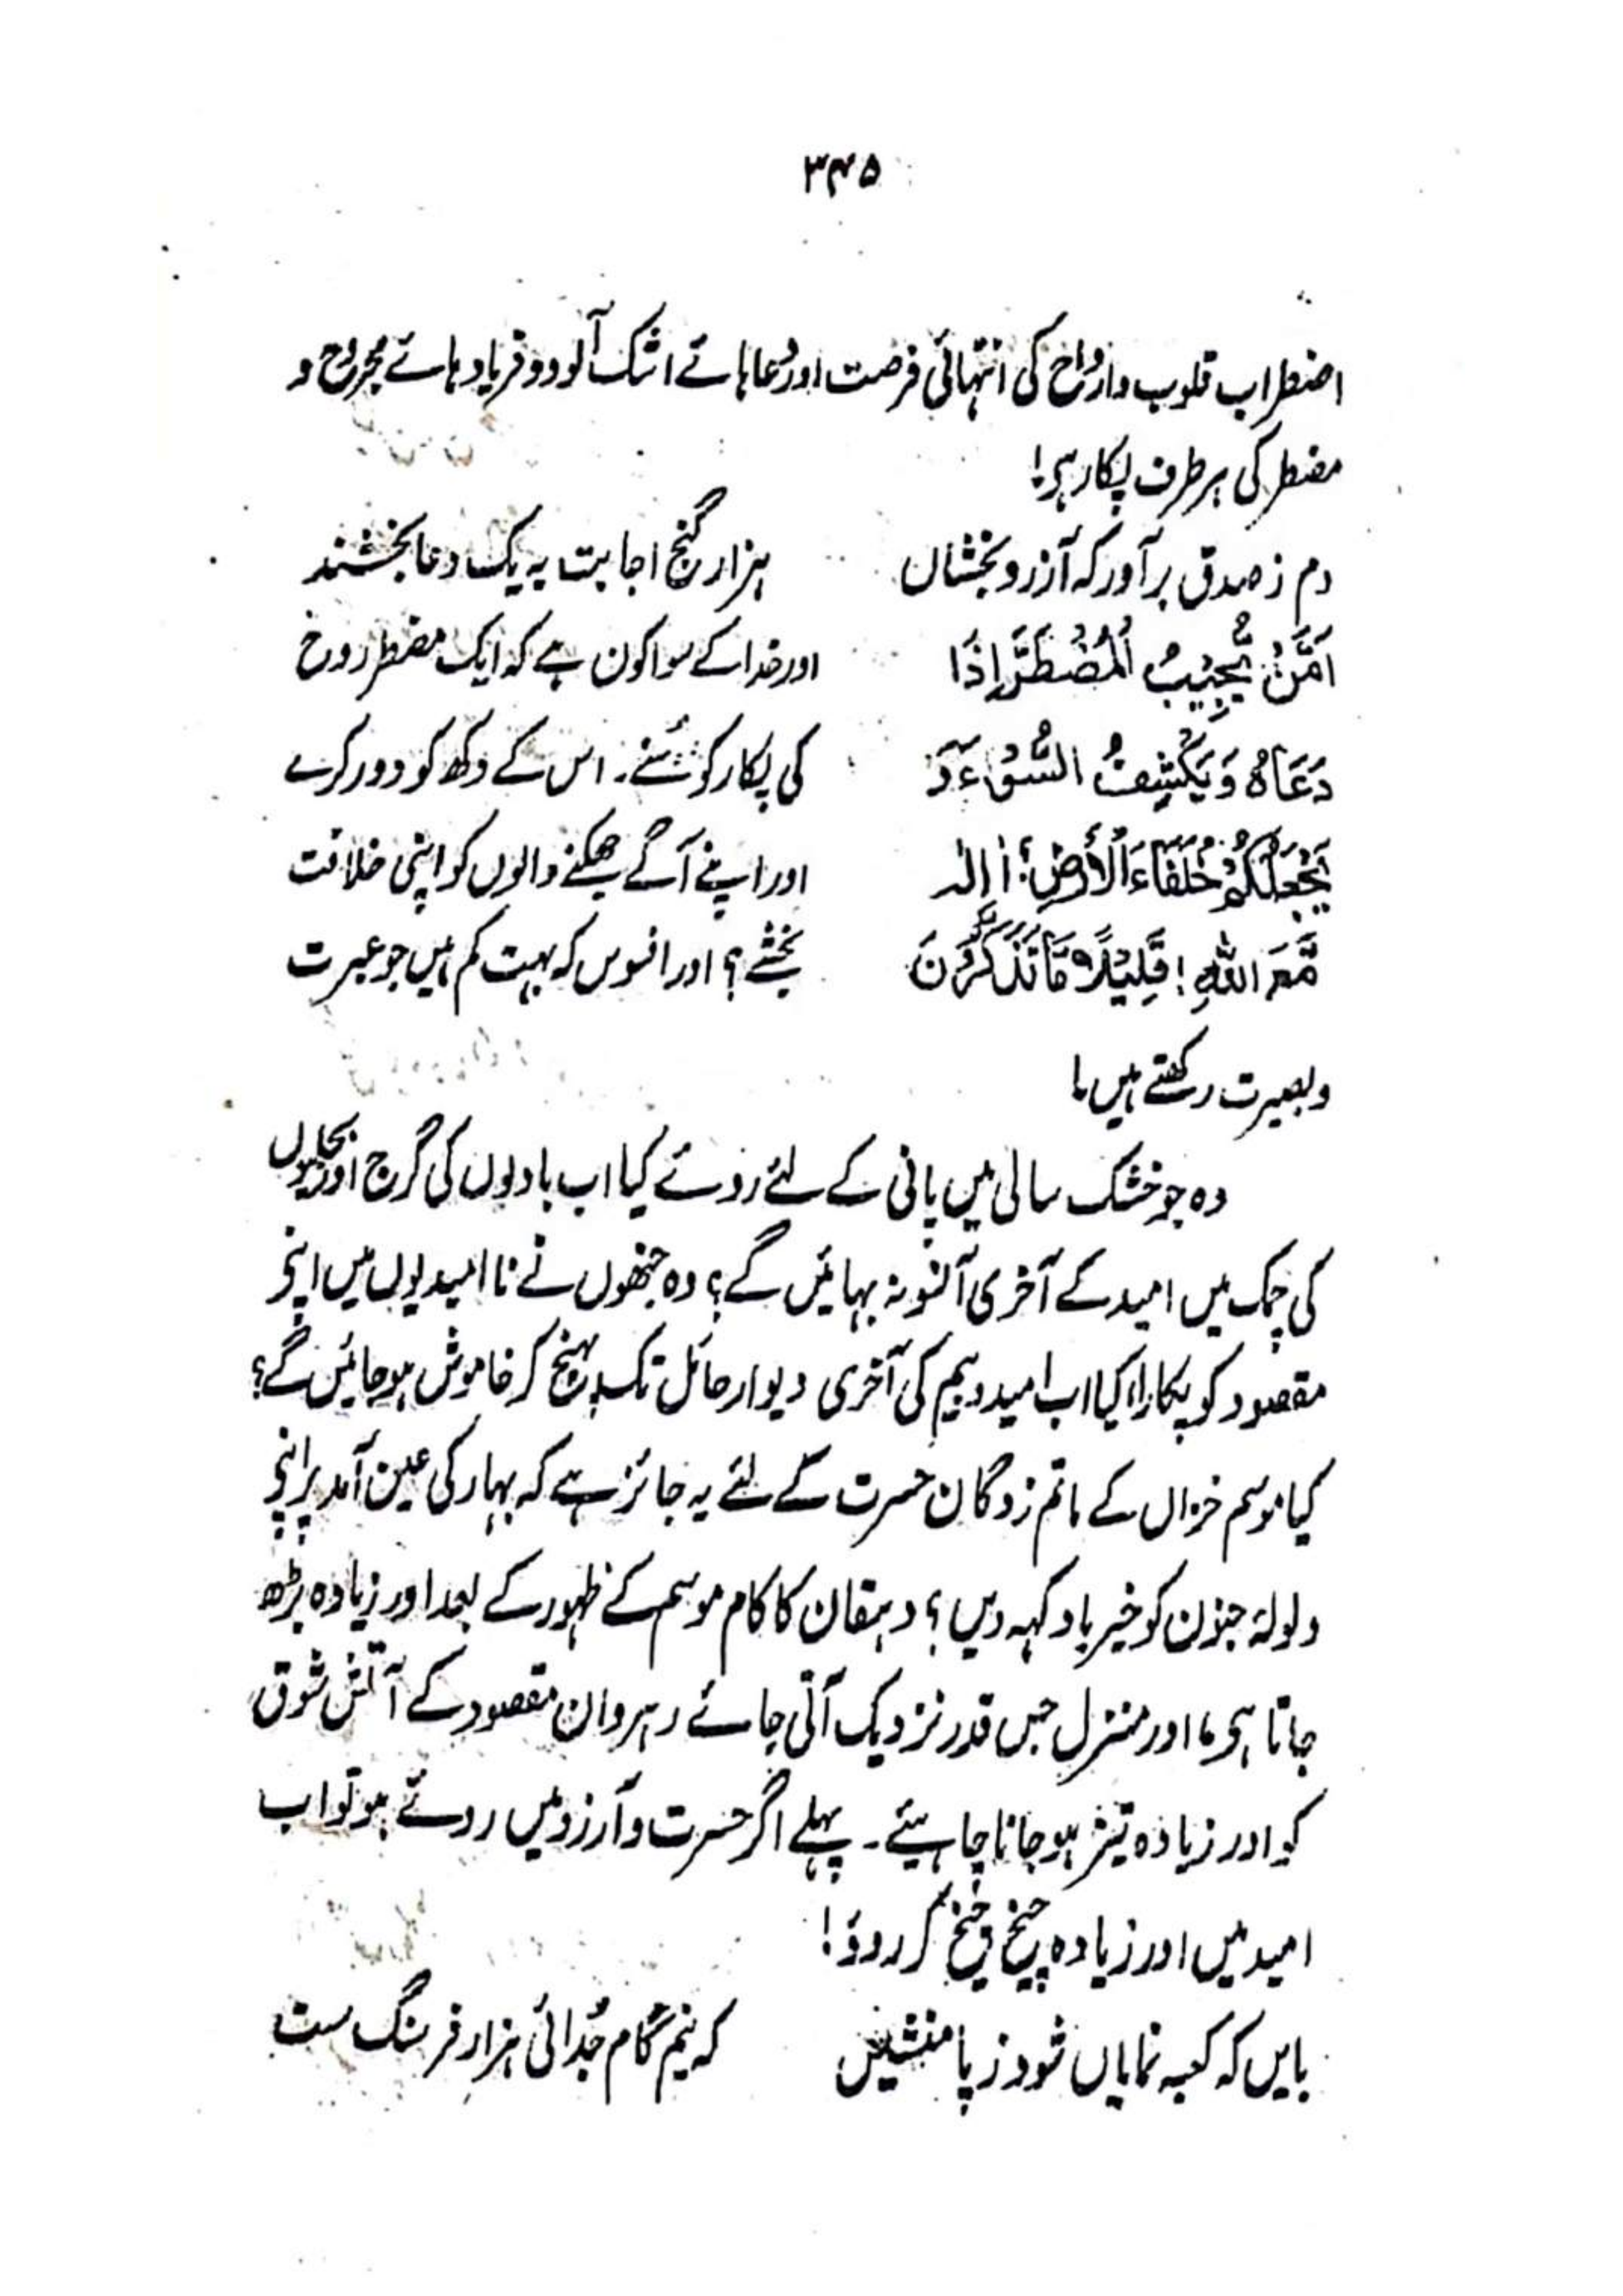 ۳۴۵
اضطراب قلوب وارواح کی انتہائی فرصت اور دُعاہائے اشک آلود و فریاد ہائے مجروح و
مضطر کی ہر طرف پکار ہی!
دم ز صدق بر آور کہ آرزو بخشاں ہزار گنج اجابت بہ یک دعا بخشند
اَمَّنْ يُّجِيْبُ الْمُضْطَرَّ اِذَا اور خدا کے سوا کون ہے کہ ایک مضطر روح
دَعَاهُ وَيَكْشِفُ السُّوْءَ وَ کی پکار کو سُنے۔ اس کے دکھ کو دور کرے
يَجْعَلُكُمْ خُلَفَاءَ الْأَرْضِ؛ اَاِلٰہ اور اپنے آگے جھکنے والوں کو اپنی خلافت
مَّعَ اللهِ! قَلِيْلًا مَّا تَذَكَّرُوْنَ بخشے؟ اور افسوس کہ بہت کم ہیں جو عبرت
وبصیرت رکھتے ہیں!
وہ جو خشک سالی میں پانی کے لئے روئے کیا اب بادلوں کی گرج اور بجلیوں
کی چمک میں امید کے آخری آنسو نہ بہائیں گے؟ وہ جنھوں نے نا امیدیوں میں اپنے
مقصود کو پکارا، کیا اب امید و بیم کی آخری دیوار حائل تک پہنچ کر خاموش ہو جائیں گے؟
کیا موسم خزاں کے ماتم زدگان حسرت کے لئے یہ جائز ہے کہ بہار کی عین آمد پر اپنے
ولولۂ جنون کو خیر باد کہہ دیں؟ دہقان کا کام موسم کے ظہور کے بعد اور زیادہ بڑھ
جاتا ہی، اور منزل جس قدر نزدیک آتی جائے رہروان مقصود کے آتش شوق
کو اور زیادہ تیز ہو جانا چاہیئے۔ پہلے اگر حسرت و آرزو میں روئے ہو تو اب
امید میں اور زیادہ چیخ چیخ کر روؤ!
بایں کہ کعبہ نمایاں شود ز پا منشیں کہ نیم گام جُدائی ہزار فرسنگ ست